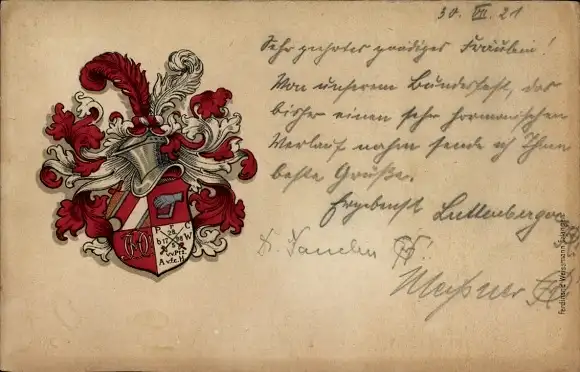 30. VII. 21
Sehr geehrtes gnädiges Fräulein!
Von unserem Bundesfest, das
bisher einen sehr harmonischen
Verlauf nahm sende ich Ihnen
beste Grüße.
Ergebenst Luttenberger
Meißner
F C
W
Ferdinand Weissmann